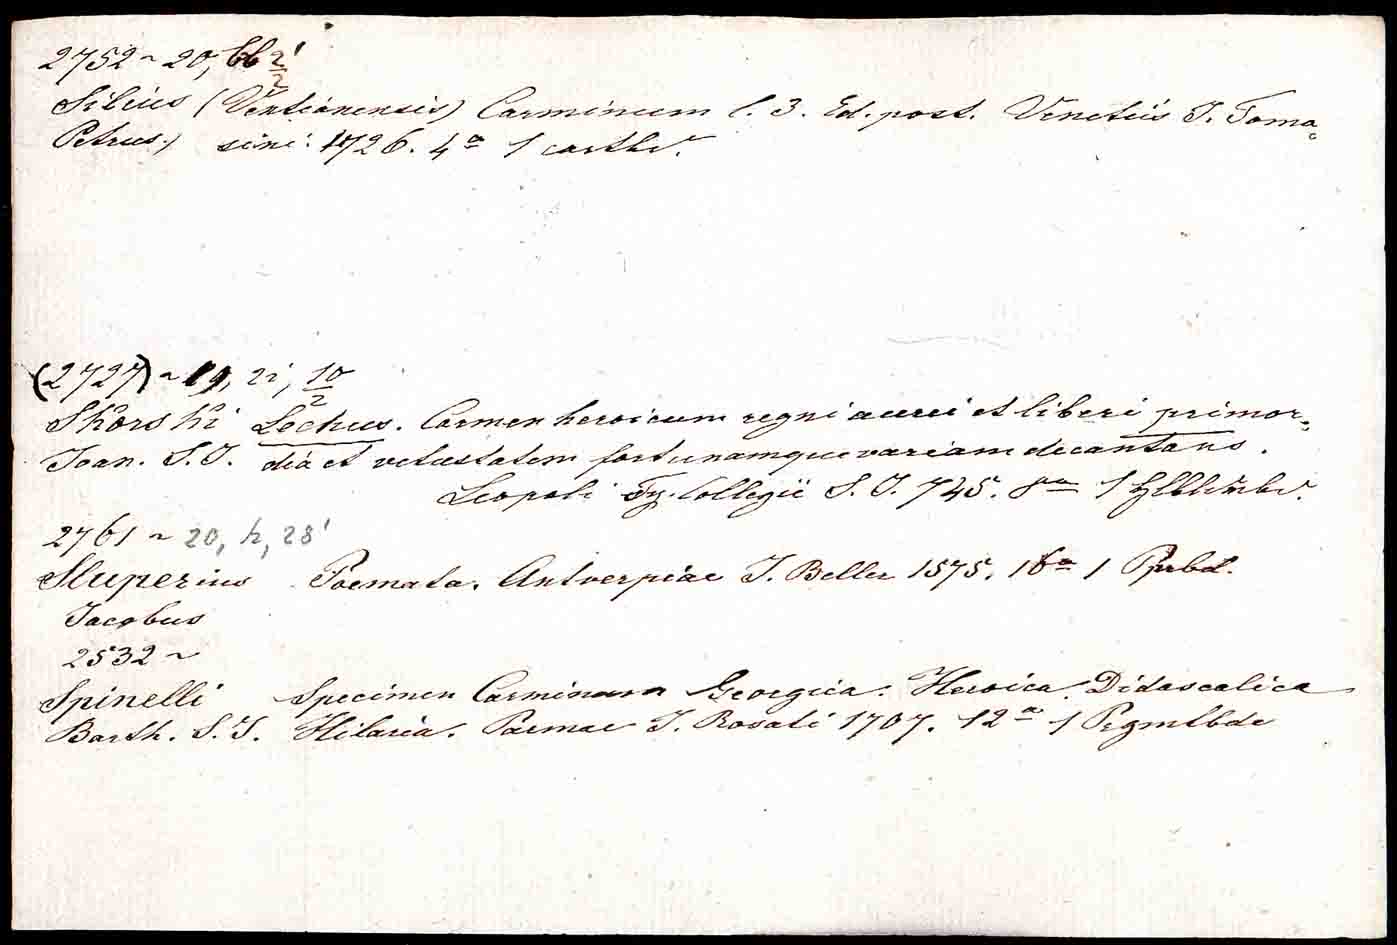 2752 ~ 20, bb 2/2'
Silius (Ventianensis) Carminum l. 3. Ed. post. Venetiis J. Toma-
Petrus.) sini: 1726. 4º 1 carthr.
(2727) ~ 19, zi, 10/2
Skorski Lechus. Carmen heroicum regni aurei et liberi primor-
Joan. S.J. dia et vetustatem fortunamque variam decantans.
Leopoli Collegii S. J. 745. 8º 1
2761 ~ 20, h, 28'
Sluperius Poemata. Antverpiae J. Beller 1575. 16º 1 Pprbd.
Jacobus
2532 ~
Spinelli Specimen Carminum Georgica. Heroica. Didascalica
Barth. S.J. Hilaria. Parmae J. Rosati 1707. 12º 1 Prgmtbde